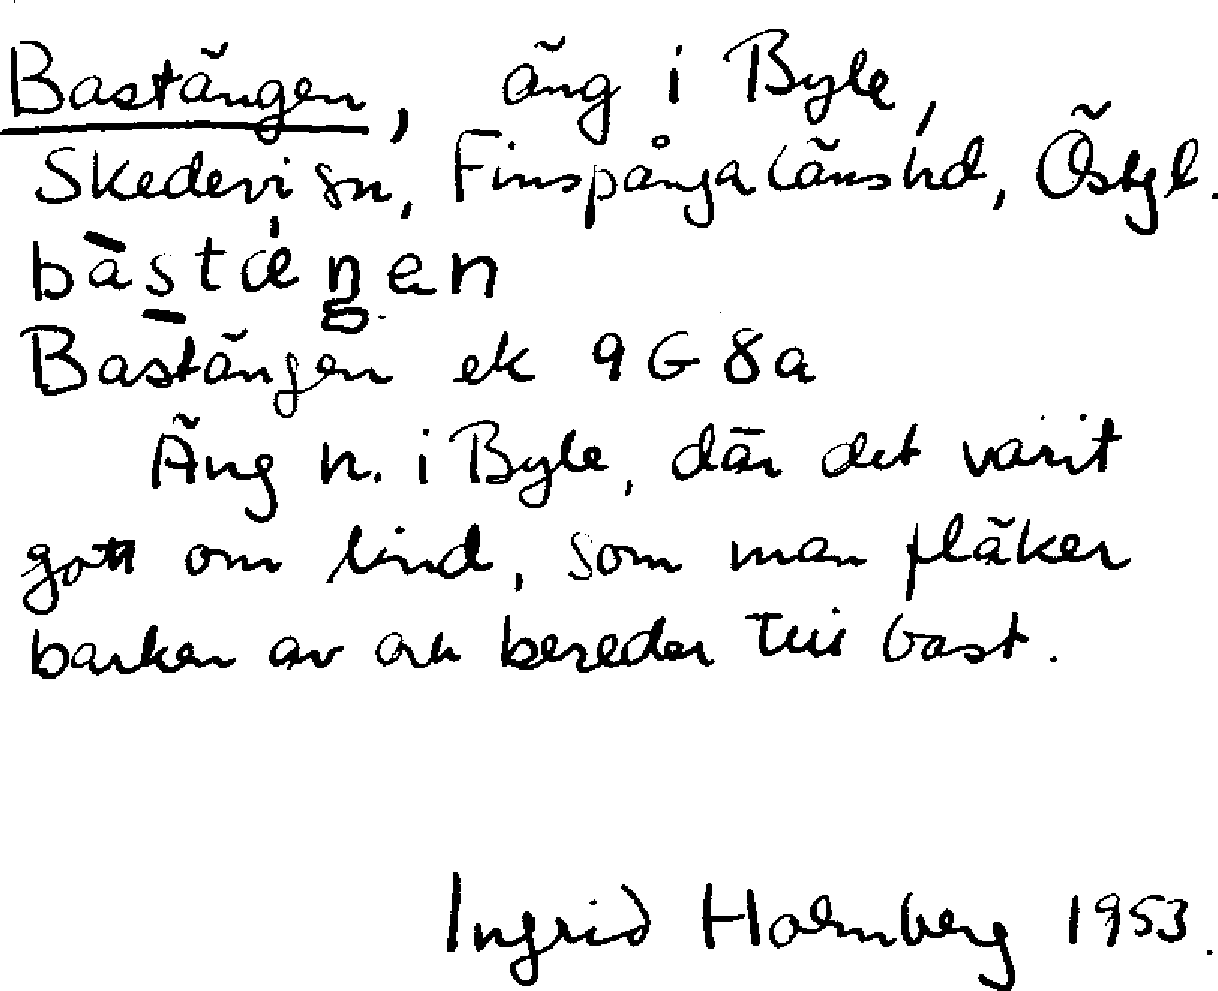 Bastängen, äng i Byle,
Skedevi sn, Finspånga läns hd, Östgl.
Bastängen ek 9G8a
Äng n. i Byle, där det varit
gott om lind, som man fläker
barken av och bereder till bast.
Ingrid Holmberg 1953.